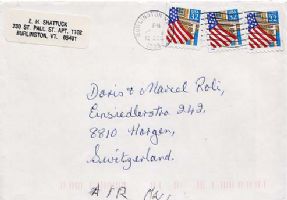 E. H. SHATTUCK
230 ST. PAUL ST. APT. 1102
BURLINGTON, VT. 05401
BURLINGTON
PM
32 32 32
Doris & Marcel Roli,
Einsiedlerstr 242.
8810 Horgen,
Switzerland.
AIR MAIL